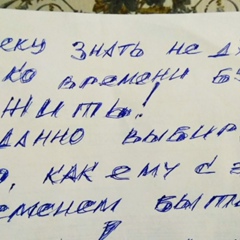 ЕКУ ЗНАТЬ НЕ Д
КО ВРЕМЕНИ Б
ЖИТЬ!
ДАННО ВЫБИР
О, КАК ЕМУ С Э
ЕМЕНЕМ БЫТ